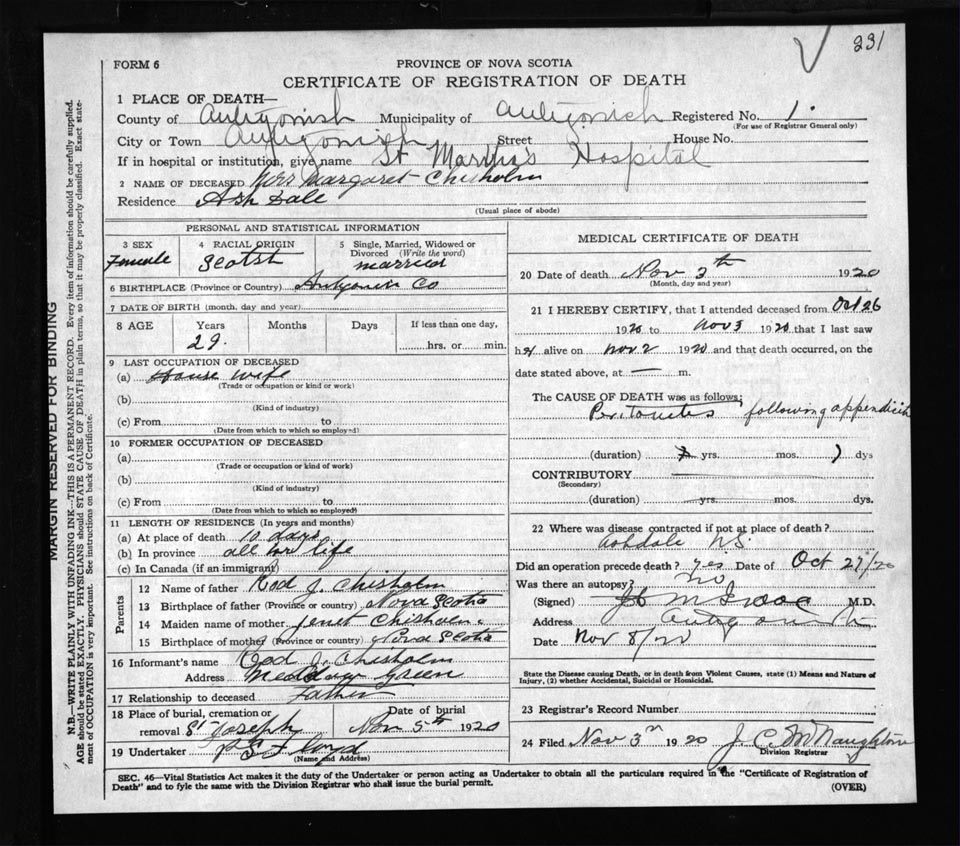 231
FORM 6
PROVINCE OF NOVA SCOTIA
CERTIFICATE OF REGISTRATION OF DEATH
1 PLACE OF DEATH—
County of Antigonish Municipality of Antigonish Registered No. 1.
(For use of Registrar General only)
City or Town Antigonish Street House No.
If in hospital or institution, give name St Martha's Hospital
2 NAME OF DECEASED Mrs Margaret Chisholm
Residence Ash Dale
(Usual place of abode)
MARGIN RESERVED FOR BINDING
N.B.—WRITE PLAINLY WITH UNFADING INK—THIS IS A PERMANENT RECORD. Every item of information should be carefully supplied.
AGE should be stated EXACTLY. PHYSICIANS should STATE CAUSE OF DEATH in plain terms, so that it may be properly classified. Exact state-
ment of OCCUPATION is very important. See instructions on back of Certificate.
PERSONAL AND STATISTICAL INFORMATION
3 SEX
Female
4 RACIAL ORIGIN
Scotsh
5 Single, Married, Widowed or
Divorced (Write the word)
married
6 BIRTHPLACE (Province or Country) Antigonish Co
7 DATE OF BIRTH (month, day and year)
8 AGE Years Months Days If less than one day,
29. hrs. or min.
9 LAST OCCUPATION OF DECEASED
(a) House wife
(Trade or occupation or kind or work)
(b)
(Kind of industry)
(c) From to
(Date from which to which so employed)
10 FORMER OCCUPATION OF DECEASED
(a)
(Trade or occupation or kind of work)
(b)
(Kind of industry)
(c) From to
(Date from which to which so employed)
11 LENGTH OF RESIDENCE (In years and months)
(a) At place of death 10 days
(b) In province all her life
(c) In Canada (if an immigrant)
Parents
12 Name of father Rod J. Chisholm
13 Birthplace of father (Province or country) Nova Scotia
14 Maiden name of mother Jenet Chisholm
15 Birthplace of mother (Province or country) Nova Scotia
16 Informant's name Rod J. Chisholm
Address Meadow Green
17 Relationship to deceased Father
18 Place of burial, cremation or removal St Joseph
Date of burial
Nov 5th 1920
19 Undertaker P S Floyd
(Name and Address)
MEDICAL CERTIFICATE OF DEATH
20 Date of death Nov 3th 1920
(Month, day and year)
21 I HEREBY CERTIFY, that I attended deceased from Oct 26
1920 to Nov 3 1920 that I last saw
her alive on Nov 2 1920 and that death occurred, on the
date stated above, at — m.
The CAUSE OF DEATH was as follows;
Peritonites following appendicitis
(duration) yrs. mos. dys
CONTRIBUTORY
(Secondary)
(duration) yrs. mos. dys.
22 Where was disease contracted if not at place of death?
Ashdale N.S.
Did an operation precede death? yes Date of Oct 27/20
Was there an autopsy? no
(Signed) M.D.
Address Antigonish
Date Nov 8/20
State the Disease causing Death, or in death from Violent Causes, state (1) Means and Nature of
Injury, (2) whether Accidental, Suicidal or Homicidal.
23 Registrar's Record Number
24 Filed Nov 3 1920 J. C. McNaughton
Division Registrar
SEC. 46—Vital Statistics Act makes it the duty of the Undertaker or person acting as Undertaker to obtain all the particulars required in the "Certificate of Registration of
Death" and to fyle the same with the Division Registrar who shall issue the burial permit.
(OVER)